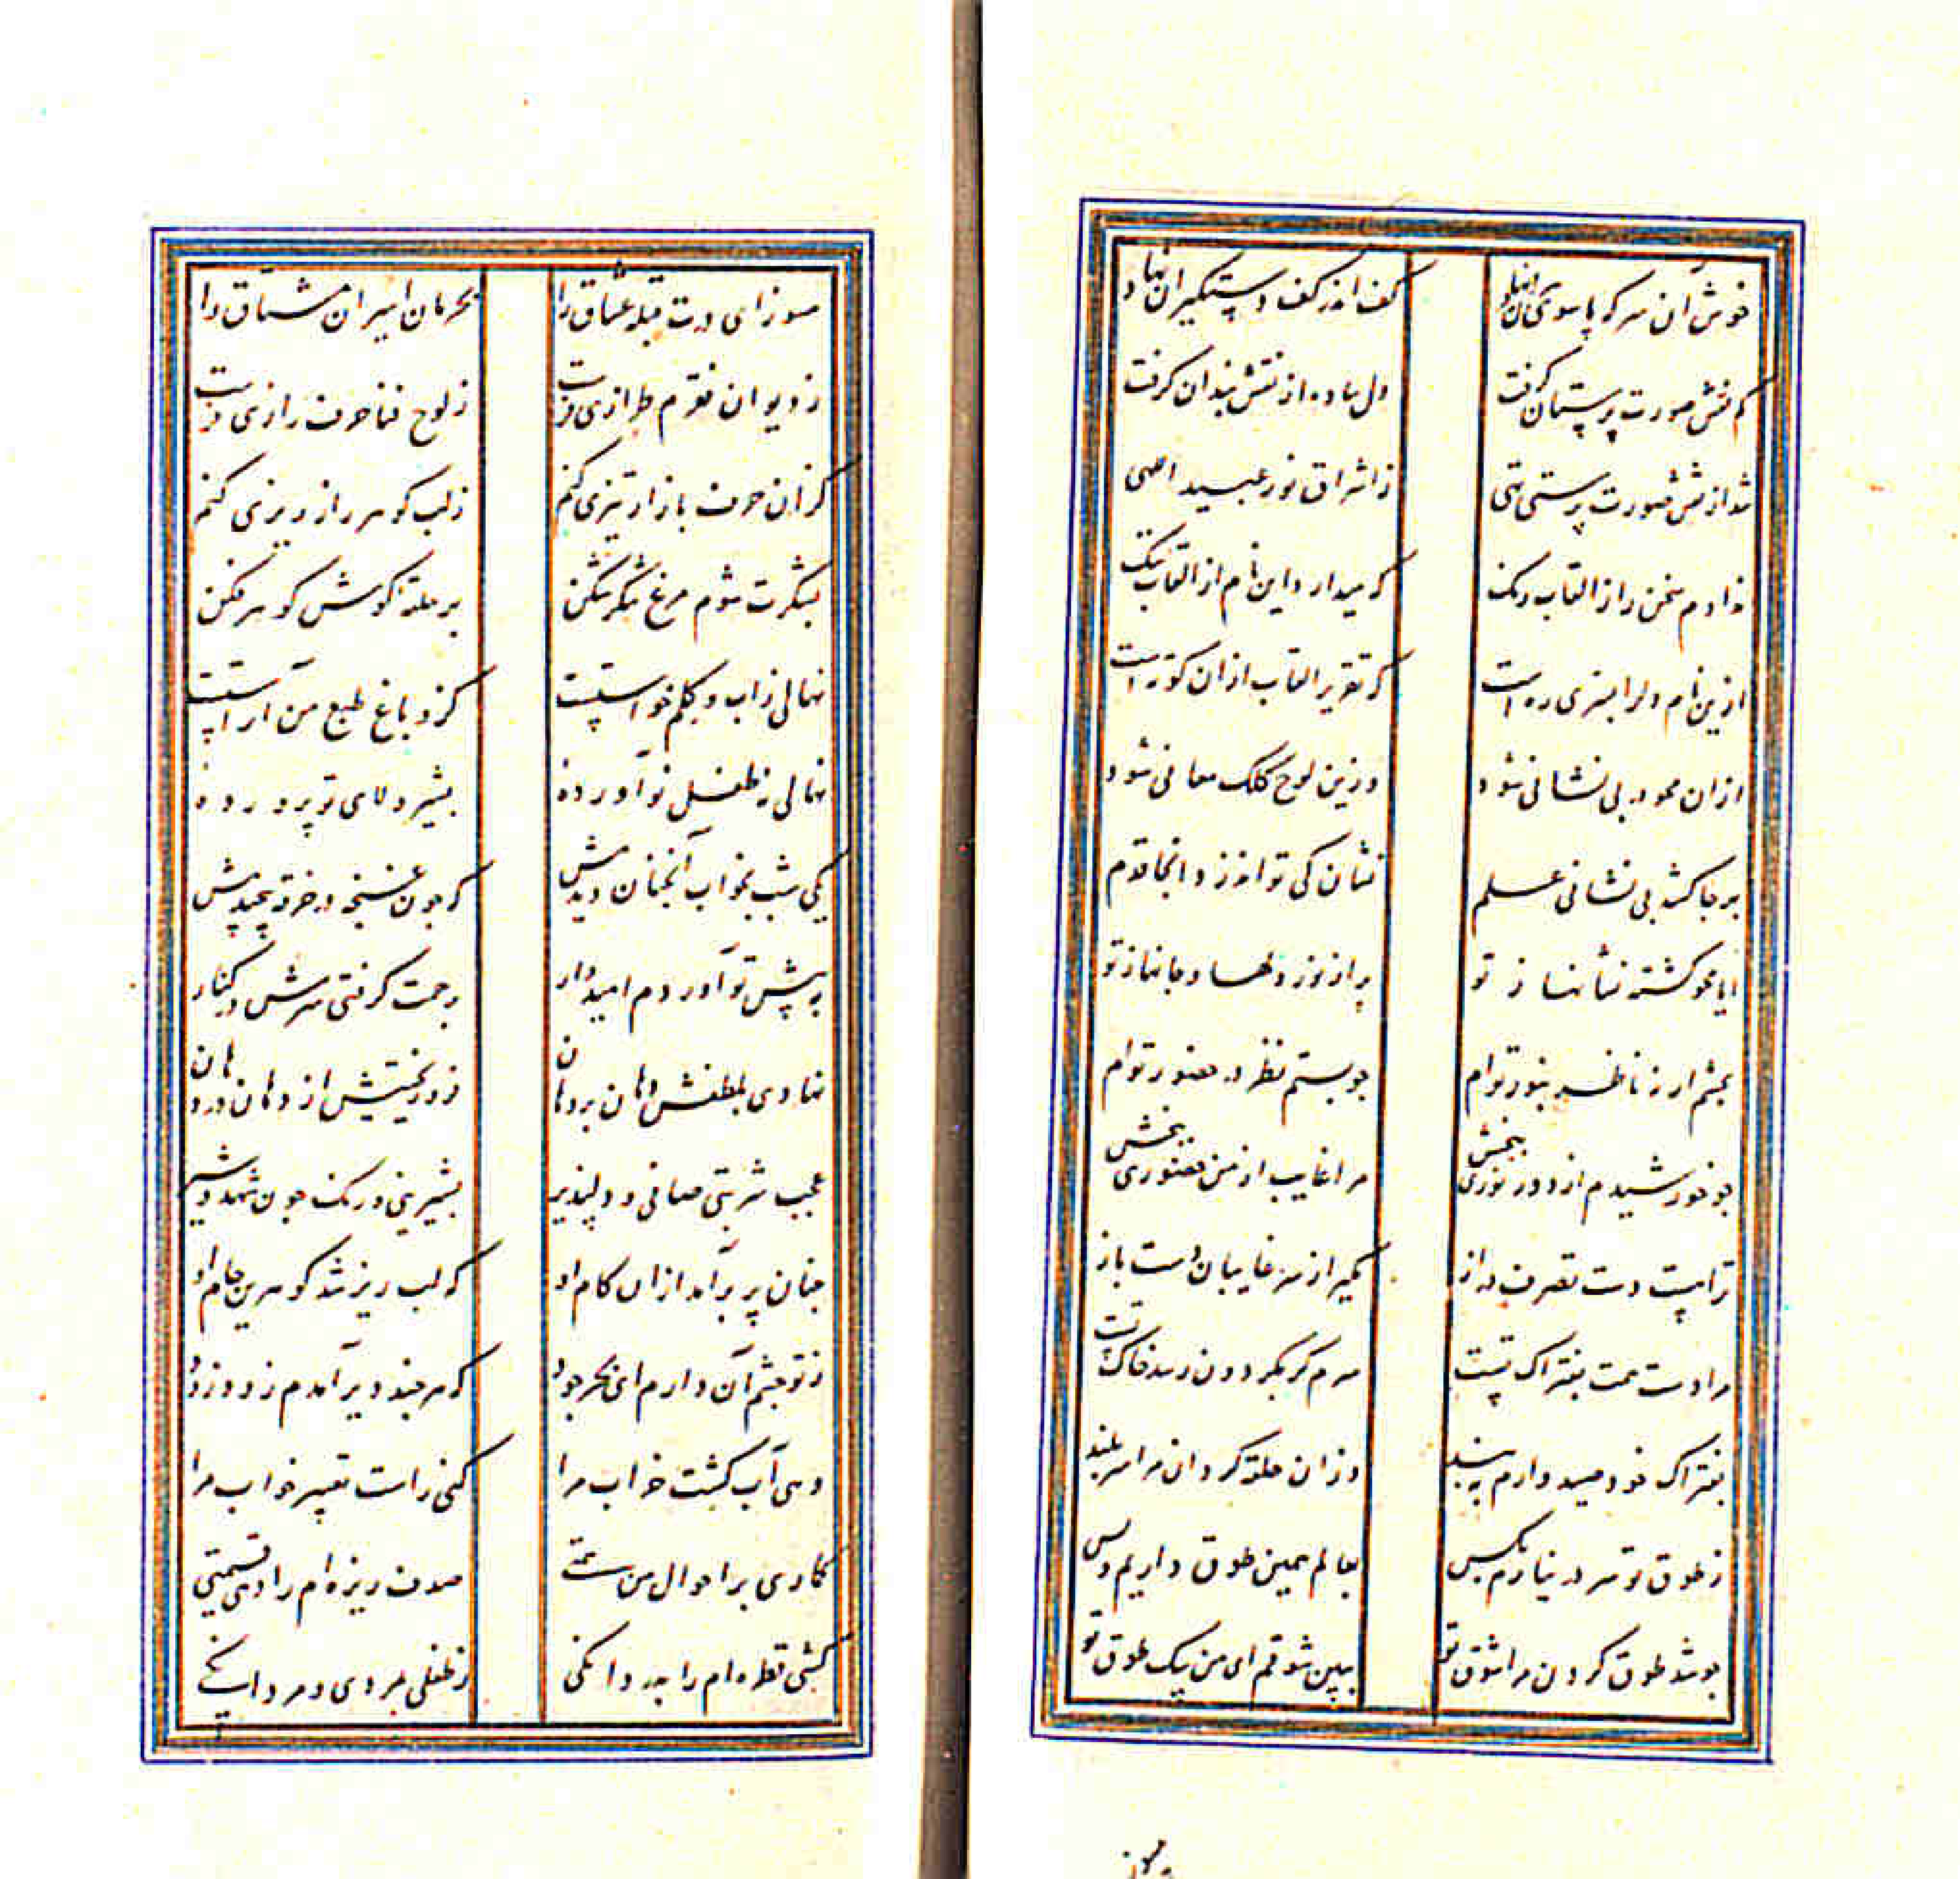 خوش آن سر که پا سوی آن نهاد کف اندر کف دستگیران نهاد
کم نقش صورت پرستان گرفت دل ساده از نقشبندان گرفت
شد از نقش صورت پرستی تهی ز اشراق نور عبید اللهی
ندادم سخن را ز القاب رنگ که میدارد این نام از القاب ننگ
ازین نام دل را بسری ره است که تقریر القاب ازان کوته است
ازان محو در بی نشانی شود وزین لوح کلک معانی شود
بهر جا کشد بی نشانی علم نشان کی تواند زد آنجا قدم
ایا محو گشته نشانها ز تو پر از نور دلها و جانها ز تو
بچشم ار ز ناظر بنور توام چو بستم نظر در حضور توام
چو خورشیدم از دور نوری ببخش مرا غایب از من حضوری ببخش
ترا هست دست تصرف دراز مگیر از سر غایبان دست باز
مرا دست همت بفتراک تست سرم گر بگردون رسد خاک تست
بفتراک خود صید وارم ببند وزان حلقه گردان مرا سربلند
ز طوق تو سر در نیارم بکس بعالم همین طوق داریم و بس
چو شد طوق گردن مرا شوق تو ببین شوقم ای من سگ طوق تو
مسوز ای درت قبله عشاق را بحرمان اسیران مشتاق را
ز دیوان فقرم طرازی فرست ز لوح فنا حرف رازی فرست
کزان حرف بازار تیزی کنم ز لب گوهر راز ریزی کنم
بشکرت شوم مرغ شکر شکن بر حلقه گوش گوهر فکن
نهالی ز آب و گلم خواستست کزو باغ طبع من آراستست
نهالی ز طفل نو آورده بشیر ولای تو پرورده
یکی شب بخواب آنچنان دیدمش که چون غنچه در خرقه پیچیدمش
به پیش تو آوردم امیدوار برحمت گرفتی سرش در کنار
نهادی بلطفش دهان بر دهان فرو ریختیش از دهان در دهان
عجب شربتی صافی و دلپذیر بشیرینی و رنگ چون شهد و شیر
چنان پر برآمد ازان کام او که لب ریز شد گوهرین جام او
ز تو چشم آن دارم ای بحر جود که هر چند دیر آمدم زود زود
دهی آب کشت خواب مرا کنی راست تعبیر خواب مرا
گماری بر احوال من همتی صدف ریزه ام را دهی قسمتی
کشی قطره ام را بدردانگی ز طفلی بمردی و مردانگی